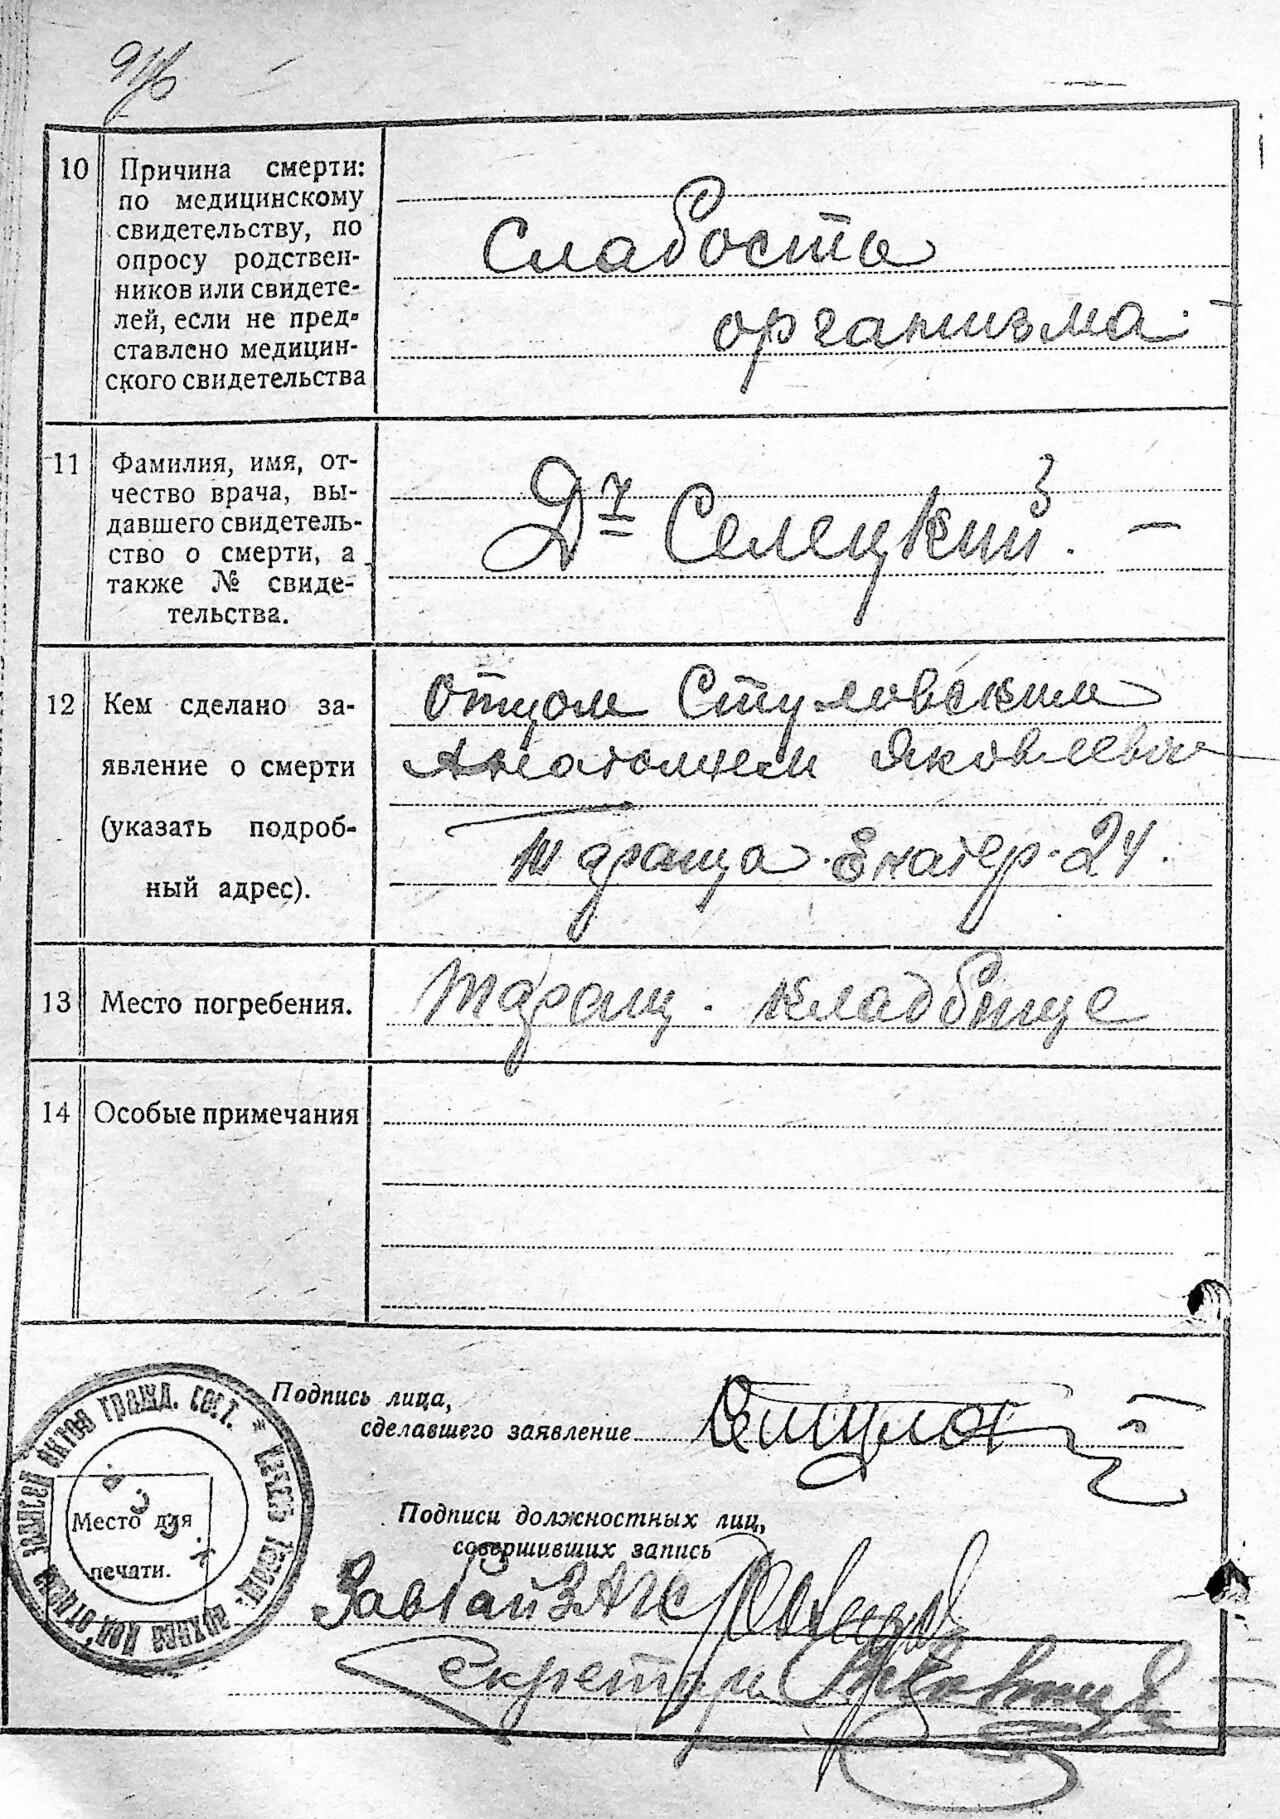 10 Причина смерти:
по медицинскому
свидетельству, по
опросу родствен-
ников или свидете-
лей, если не пред-
ставлено медицин-
ского свидетельства
Слабость
организма.
11 Фамилия, имя, от-
чество врача, вы-
давшего свидетель-
ство о смерти, а
также № свиде-
тельства.
Др Селецкий.
12 Кем сделано за-
явление о смерти
(указать подроб-
ный адрес).
Отцом Стуловским
Анатолием Яковлевич
Тараща Екатер. 24.
13 Место погребения.
Таращ. кладбище
14 Особые примечания
Подпись лица,
сделавшего заявление
Подписи должностных лиц,
совершивших запись
ЗавРайЗАГС
Секретарь
Место для
печати.
записей актов гражд. сост.